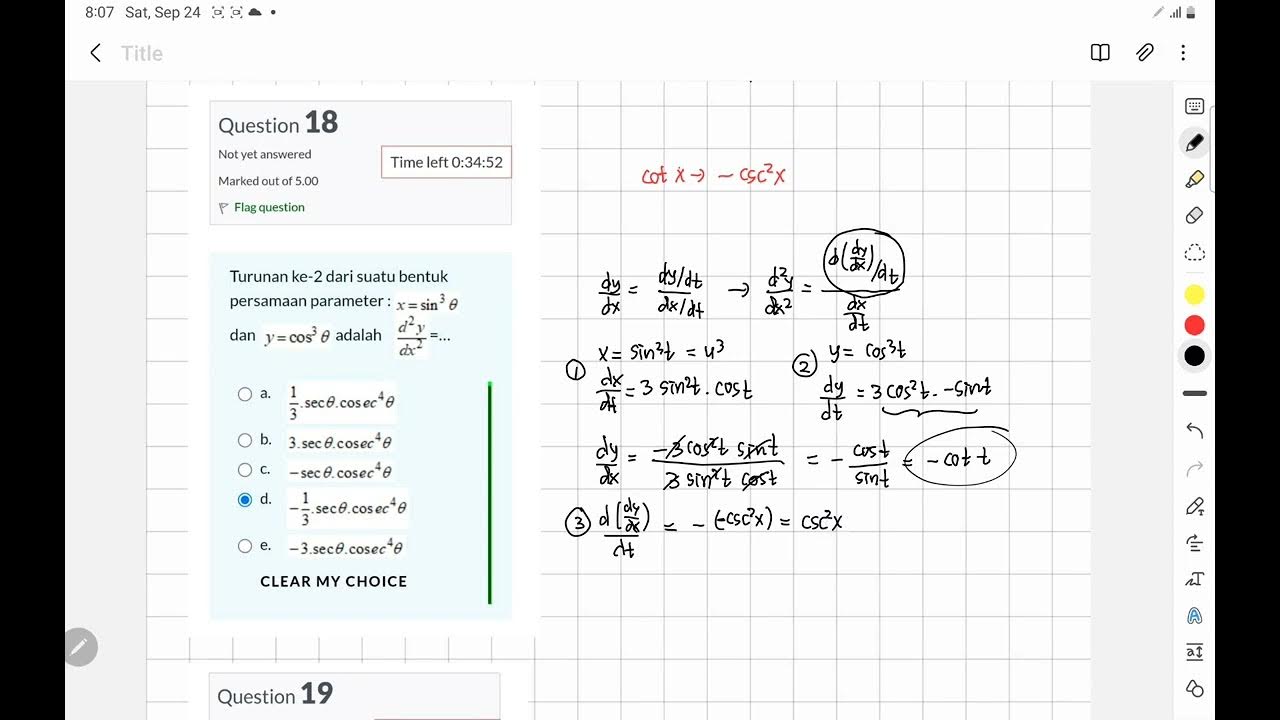 8:07 Sat, Sep 24
Title
Question 18
Not yet answered
Time left 0:34:52
Marked out of 5.00
Flag question
Turunan ke-2 dari suatu bentuk
persamaan parameter : x = sin³ θ
dan y = cos³ θ adalah d²y/dx² =...
a. 1/3 .sec θ.cosec⁴ θ
b. 3.sec θ.cosec⁴ θ
c. −sec θ.cosec⁴ θ
d. −1/3 .sec θ.cosec⁴ θ
e. −3.sec θ.cosec⁴ θ
CLEAR MY CHOICE
Question 19
cot x → − csc²x
dy/dx = (dy/dt)/(dx/dt) → d²y/dx² = (d(dy/dx)/dt)/(dx/dt)
① x = sin³t = u³
dx/dt = 3 sin²t . cos t
② y = cos³t
dy/dt = 3 cos²t . −sin t
dy/dx = (−3 cos²t sin t)/(3 sin²t cos t) = − cos t/sin t = − cot t
③ d(dy/dx)/dt = − (−csc²x) = csc²x